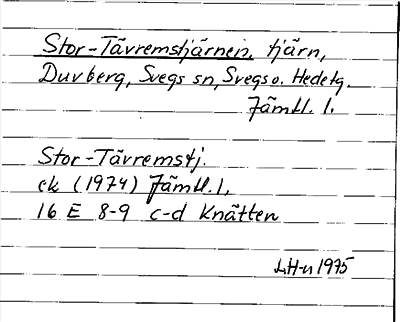 Stor-Tävremstjärnein, tjärn,
Duvberg, Svegs sn, Svegs o. Hede tg.
Jämtl. l.
Stor-Tävremstj.
ek (1974) Jämtl. l.
16 E 8-9 c-d Knätten
LH-n 1975